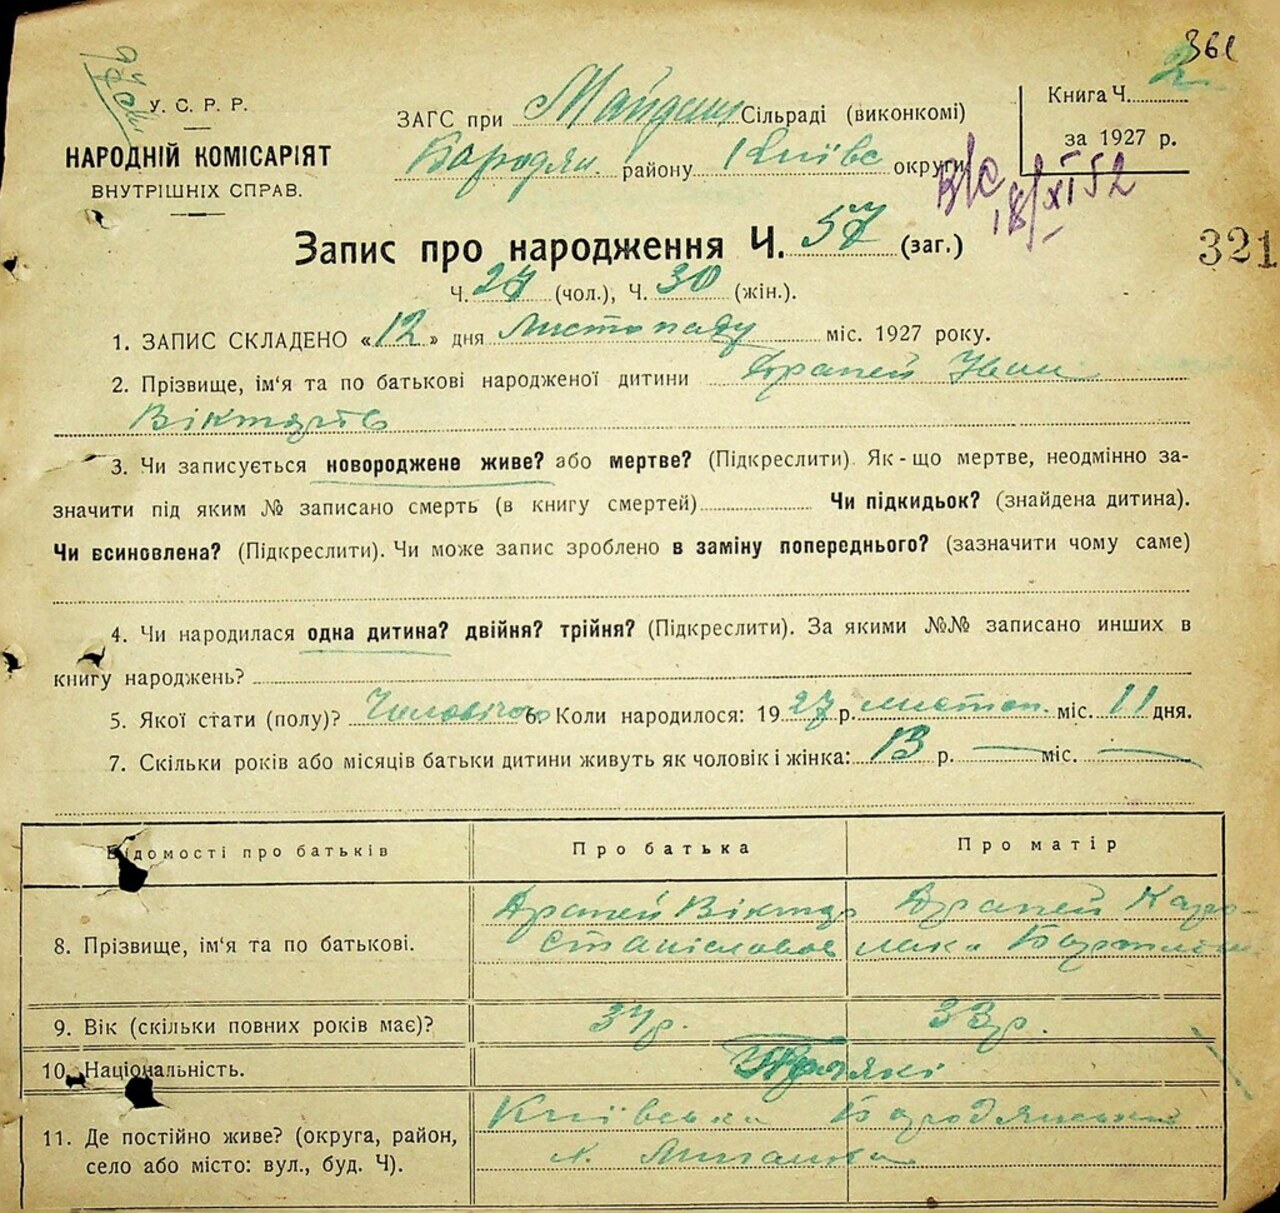 361
2
У. С. Р. Р.
НАРОДНІЙ КОМІСАРІЯТ
ВНУТРІШНІХ СПРАВ.
ЗАГС при Майдан Сільраді (виконкомі)
Бородян. району Київс округи
Книга Ч.
за 1927 р.
В/С
18/XI 52
321
Запис про народження Ч. 57 (заг.)
Ч. 27 (чол.), Ч. 30 (жін.).
1. ЗАПИС СКЛАДЕНО «12» дня Листопаду міс. 1927 року.
2. Прізвище, ім'я та по батькові народженої дитини Драпей Іван
Вікторів
3. Чи записується новороджене живе? або мертве? (Підкреслити). Як-що мертве, неодмінно за-
значити під яким № записано смерть (в книгу смертей) Чи підкидьок? (знайдена дитина).
Чи всиновлена? (Підкреслити). Чи може запис зроблено в заміну попереднього? (зазначити чому саме)
4. Чи народилася одна дитина? двійня? трійня? (Підкреслити). За якими №№ записано инших в
книгу народжень?
5. Якої стати (полу)? Чоловічої 6. Коли народилося: 1927 р. листоп. міс. 11 дня.
7. Скільки років або місяців батьки дитини живуть як чоловік і жінка: 13 р. — міс. —
Відомості про батьків Про батька Про матір
8. Прізвище, ім'я та по батькові. Драпей Віктор Станіславов Драпей
9. Вік (скільки повних років має)? 37 р. 33 р.
10. Національність.
11. Де постійно живе? (округа, район, Київська Бородянський
село або місто: вул., буд. Ч). х.